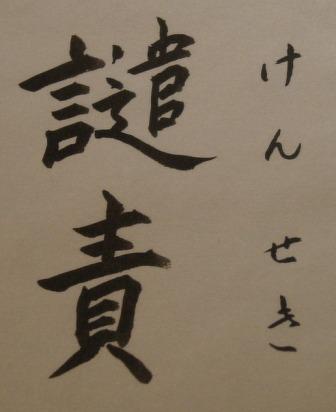 譴責
けんせき